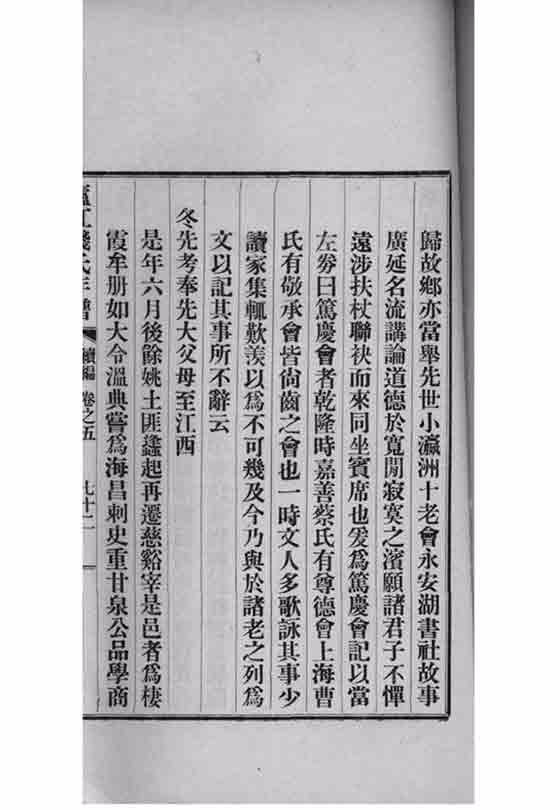 歸故鄉亦當舉先世小瀛洲十老會永安湖書社故事
廣延名流講論道德於寬閒寂寞之濱願諸君子不憚
遠涉扶杖聯袂而來同坐賓席也爰為篤慶會記以當
左劵曰篤慶會者乾隆時嘉善蔡氏有尊德會上海曹
氏有敬承會皆尙齒之會也一時文人多歌詠其事少
讀家集輒歎羨以為不可幾及今乃與於諸老之列為
文以記其事所不辭云
冬先考奉先大父母至江西
是年六月後餘姚土匪蠭起再遷慈谿宰是邑者為棲
霞牟册如大令溫典嘗為海昌刺史重甘泉公品學商
廬江錢氏年譜 續編 卷之五 七十二